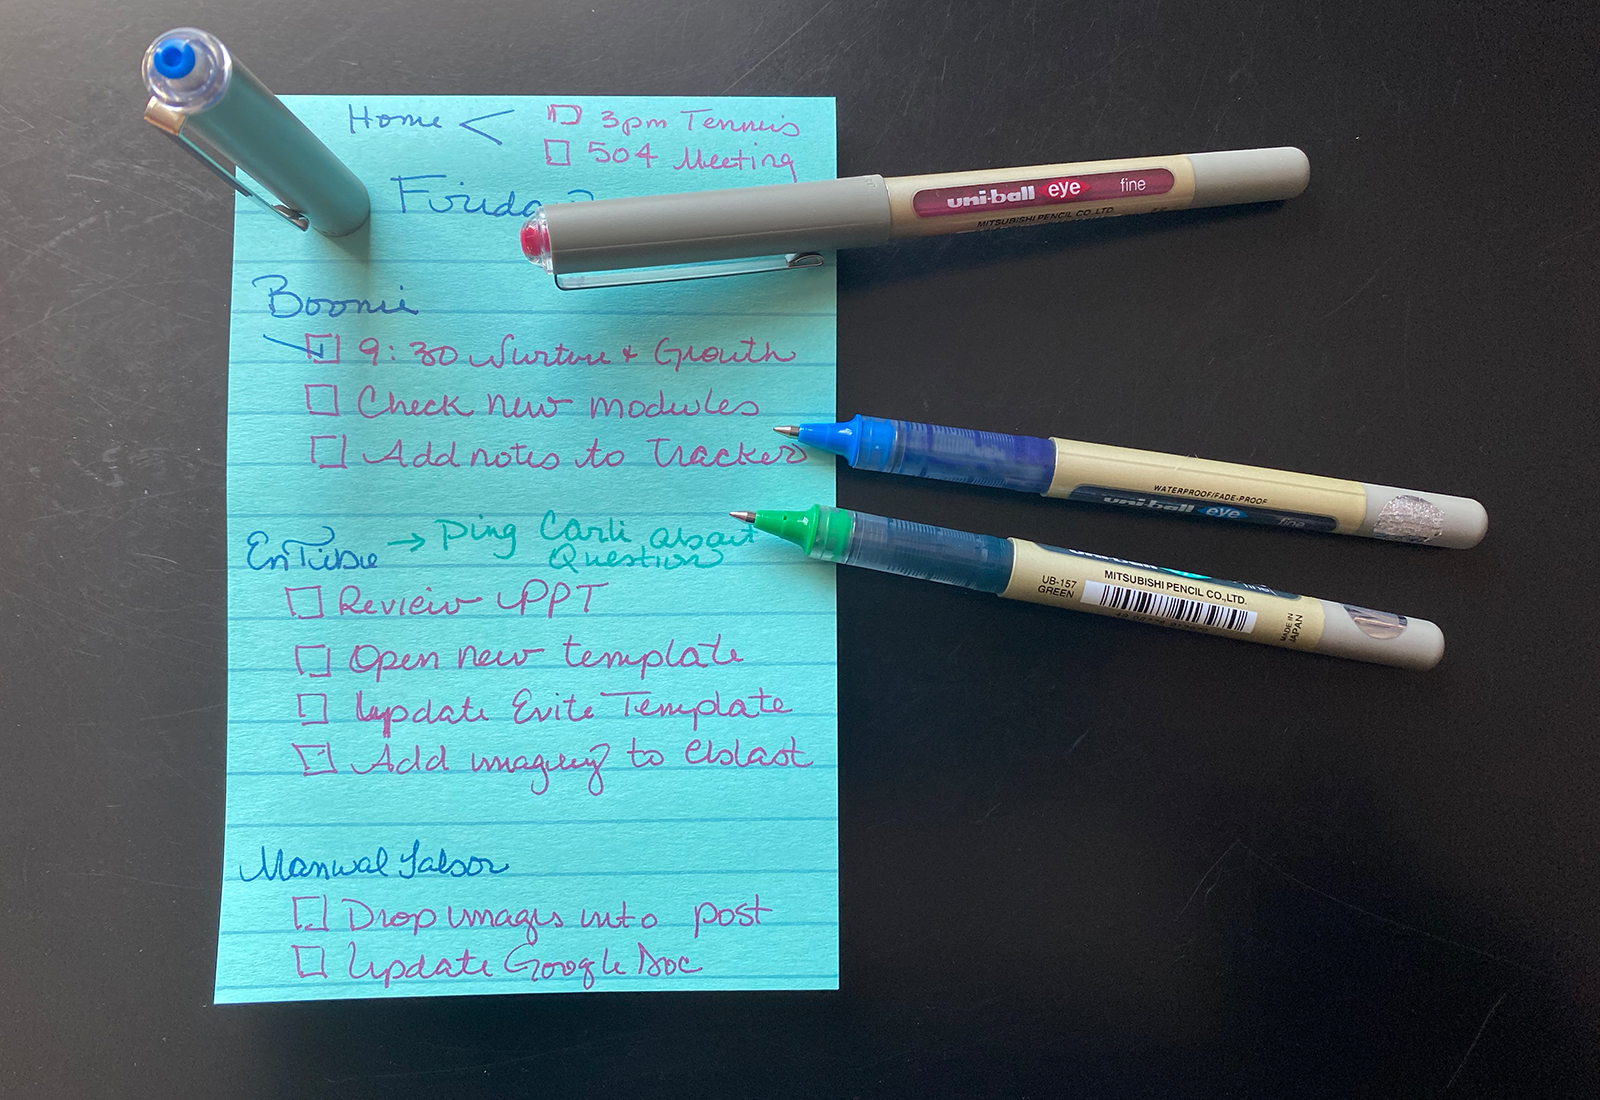 Home < 3pm Tennis
504 Meeting
Friday
Boomi
9:30 Nurture + Growth
Check new modules
Add notes to Tracker
→ Ping Carli about
Question
Review PPT
Open new template
Update Evite Template
Add imagery to eblast
Manual Labor
Drop images into post
Update Google Doc
uni-ball eye fine
MITSUBISHI PENCIL CO. LTD.
WATERPROOF/FADE-PROOF
uni-ball eye fine
UB-157
GREEN
MITSUBISHI PENCIL CO.,LTD.
MADE IN
JAPAN